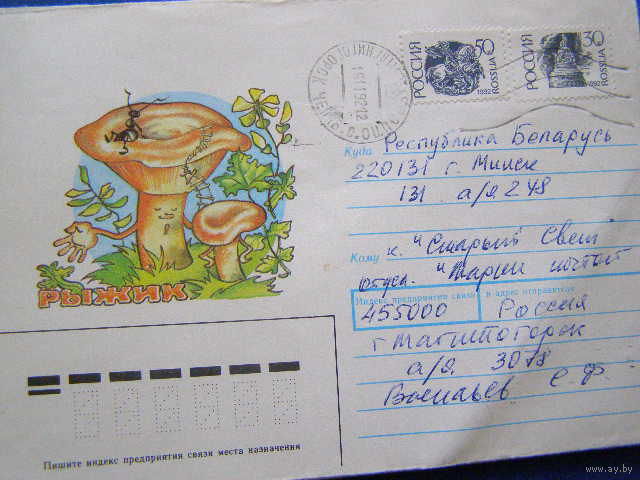 РОССИЯ 50
1992 ROSSIJA
РОССИЯ 30
1992 ROSSIJA
РЫЖИК
Куда Республика Беларусь
220131 г. Минск
131 а/я 248
Кому к. "Старый Свет"
Индекс предприятия связи и адрес отправителя
455000 Россия
г Магнитогорск
а/я 3078
Васильев С.Ф.
Пишите индекс предприятия связи места назначения
www.ay.by